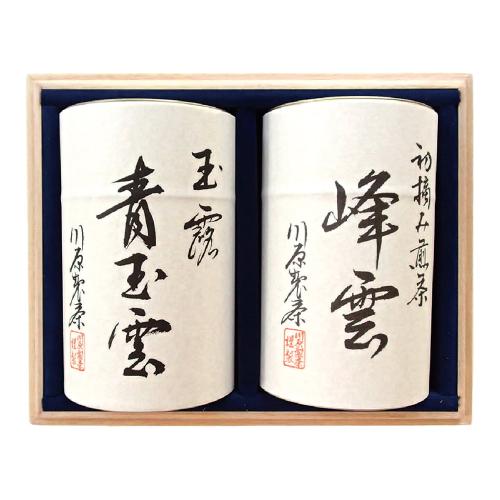 玉露
青玉雲
川原製茶
初摘み煎茶
峰雲
川原製茶